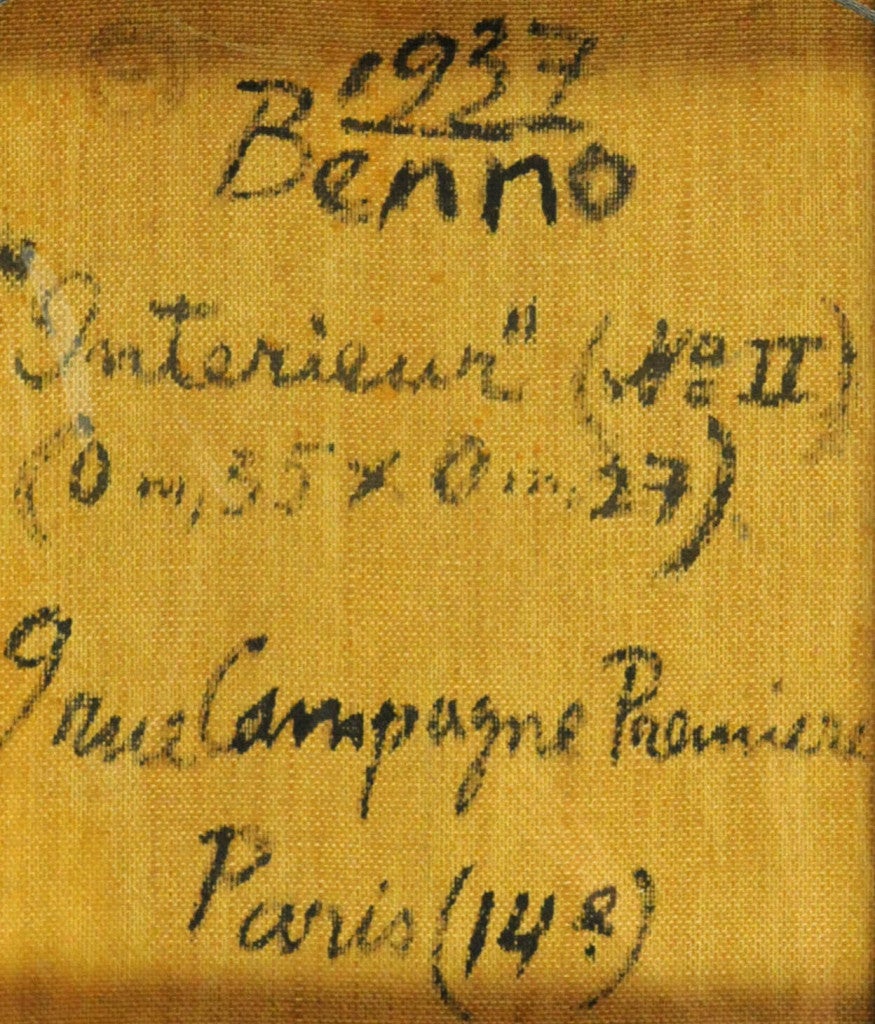 1937
Benno
"Interieur" (No II)
(0 m, 35 x 0 m, 27)
9 rue Campagne Premiere
Paris (14e)